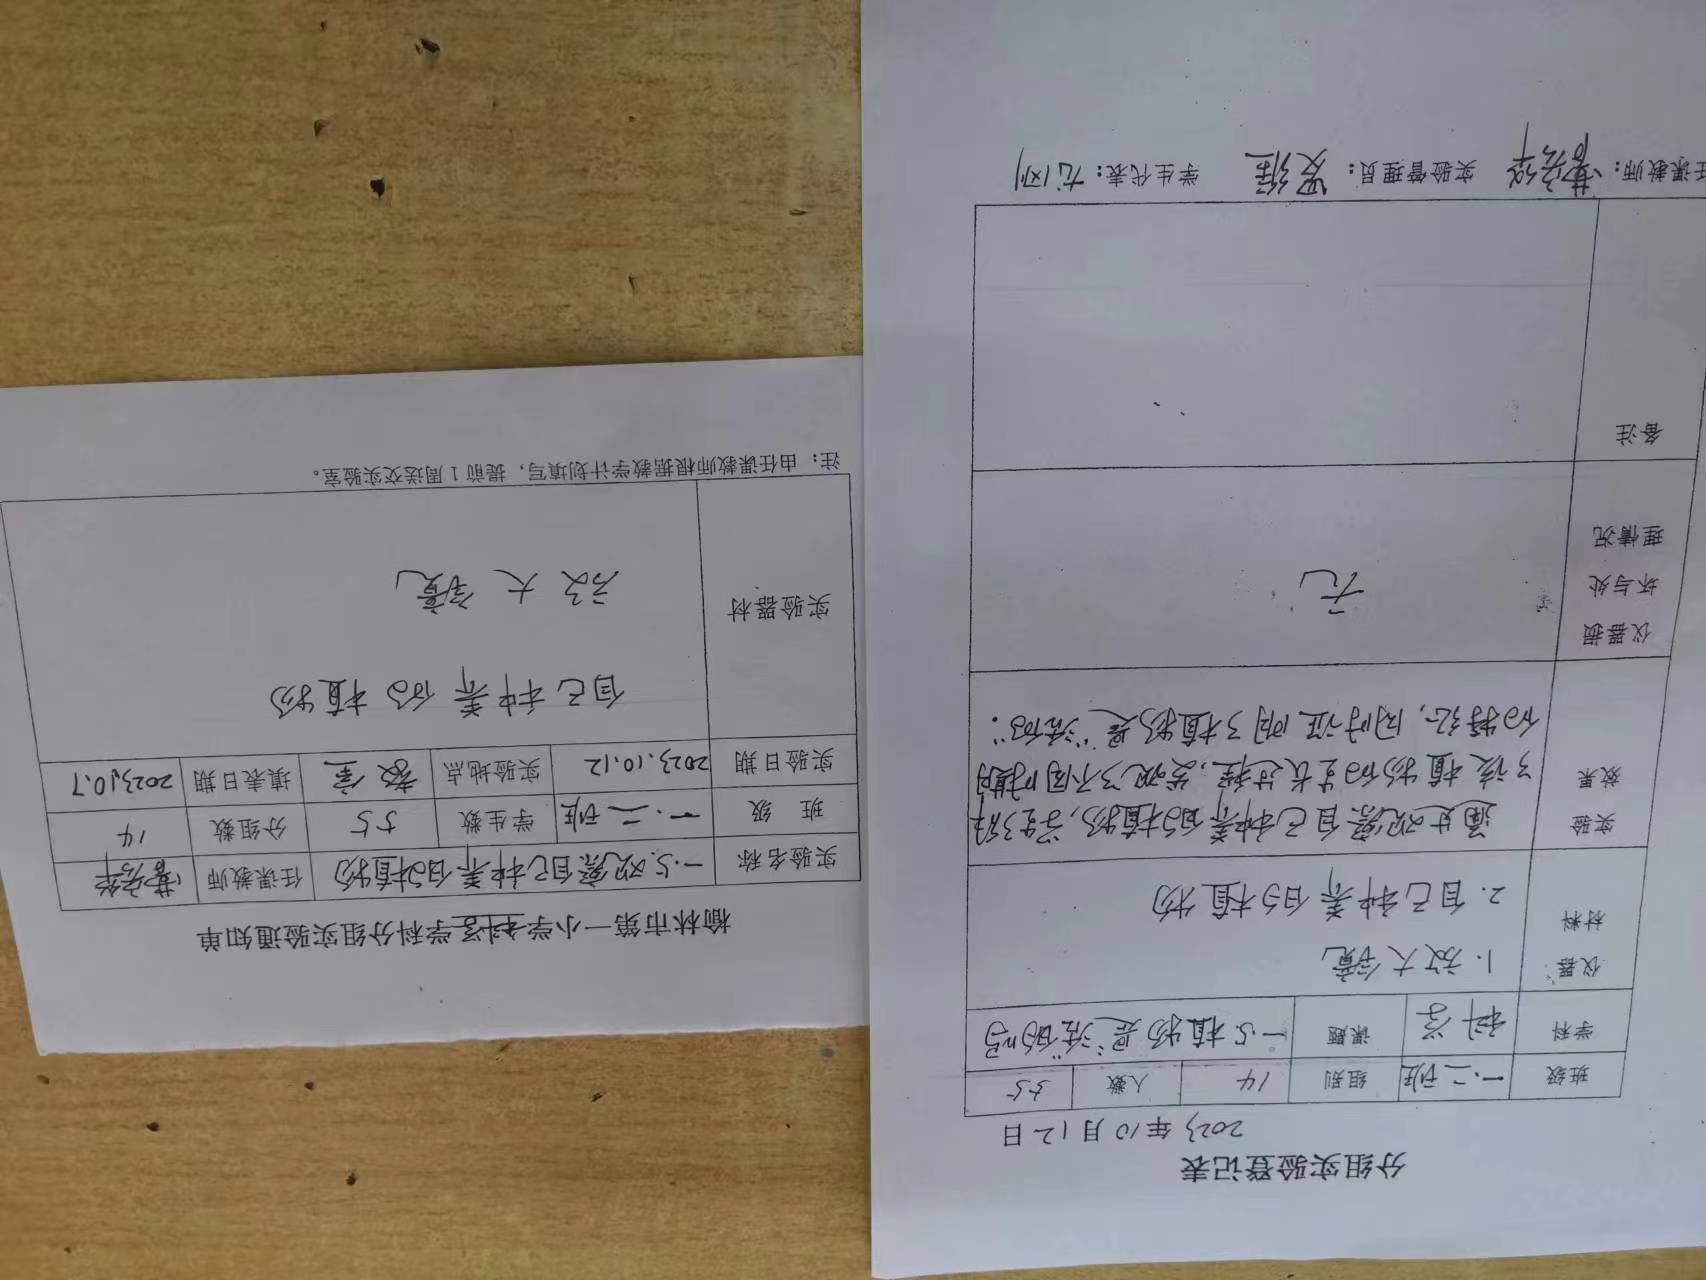 分组实验登记表
2023年10月12日
班级 一.二班 组别 14 人数 55
学科 科学 课题 一.5.植物是"活的"吗
仪器材料 1.放大镜
2.自己种养的植物
实验效果 通过观察自己种养的植物,学生了解
了该植物的生长过程,发现了不同时期的
的特征,同时证明了植物是"活的".
仪器损坏与处理情况 无
备注
任课教师: 实验管理员: 学生代表:
榆林市第一小学科学学科分组实验通知单
实验名称 一.5.观察自己种养的植物 任课教师
班 级 一.二班 学生数 55 分组数 14
实验日期 2023.10.12 实验地点 教室 填表日期 2023.10.7
实验器材 自己种养的植物
放大镜
注:由任课教师根据教学计划填写,提前1周送交实验室。